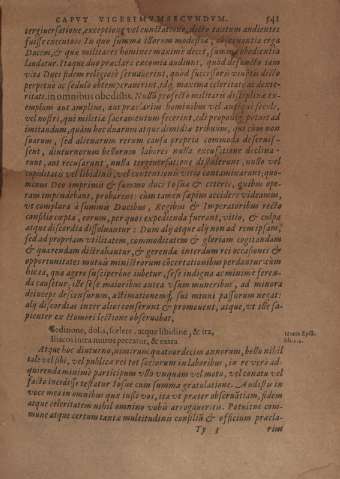 CAPVT VIGESIMVMSECVNDVM. 541
tergiuersatione, exceptione, vel cunctatione, dicto tantum audientes
fuisse executos. In quo summa illorum modestia, obseruantia erga
Ducem, & quæ militares homines maximè decet, summa obedientia
laudatur. Itaque duo præclarè encomia audiunt, quod defuncto iam
vita Duci fidem religiosè seruauerint, quod successoris
perpetuò ac sedulò obtemperauerint, idque maxima celeritate ac dexte-
ritate, in omnibus obedistis. Nulla profectò militaris disciplinæ ex-
emplum aut amplius, aut præclarius hominibus vel antiqui seculi,
vel nostri, qui militiæ sacramentum fecerint, ad
imitandum, quàm hoc duarum atque dimidiæ tribuum, qui cùm non
suarum, sed alienarum rerum causa propria commoda deserui-
sent, diuturnorum bellorum labores nulla excusatione declina-
runt, aut recusarunt, nulla tergiuersatione distulerunt, nullo vel
cupiditatis vel libidinis, vel contentionis vitio contaminarunt; quo-
minus Deo imprimis & summo duci Iosuæ & ceteris, quibus ope-
ram impendebant, probarent: cùm tamen sæpius accidere videamus,
vt complura à summis Ducibus, Regibus & Imperatoribus recta
consilia capta, eorum, per quos expedienda fuerant, vitio, & culpa
atque discordia dissoluantur: Dum alij atque alij non ad rempublicam,
sed ad propriam vtilitatem, commoditatem & gloriam cogitandam
& quærendam distrahuntur, & gerendæ interdum rei occasiones &
opportunitates mutua ministrorum concertationibus perdantur: cùm
hic ea, quæ agere suscipereue iubetur, sese indigna ac minimè feren-
da causetur, ille sese maioribus antea vsum muneribus, ad minora
deinceps descensurum, æstimationemque sui minui passurum negat:
alij discordias inter alios conserunt & promouent, atque, vt ille sa-
pienter ex Homeri lectione obseruabat,
Seditione, dolis, scelere, atque libidine, & ira,
Iliacos intra muros peccatur, & extra. Horat. Epist.
lib. 1. 2.
Atque hoc diuturno, nimirum quatuordecim annorum, bello nihil
tale vel sibi, vel publicæ rei tot sociorum in laboribus, in re verò ad-
quirenda minimè participum vllo vnquam vel motu, vel conatu vel
facto incidisse testatur Iosue cum summa gratulatione. Audistis in
voce mea in omnibus quæ iussi vos, ita vt præter obseruantiam, fidem
atque celeritatem nihil omnino vobis arrogaueritis. Potuisse com-
mune atque certum tantæ multitudinis consilium & officium præcla-
Ty 3 rius